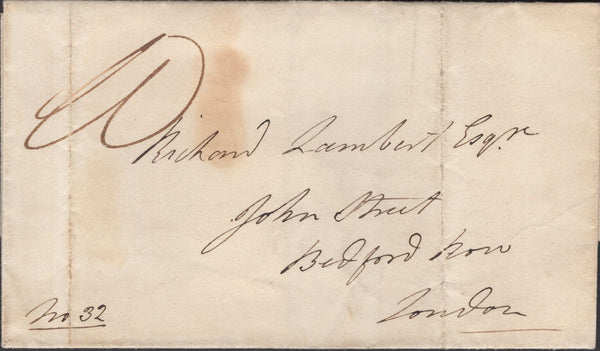 Richard Lambert Esqr
John Street
Bedford Row
London
No 32